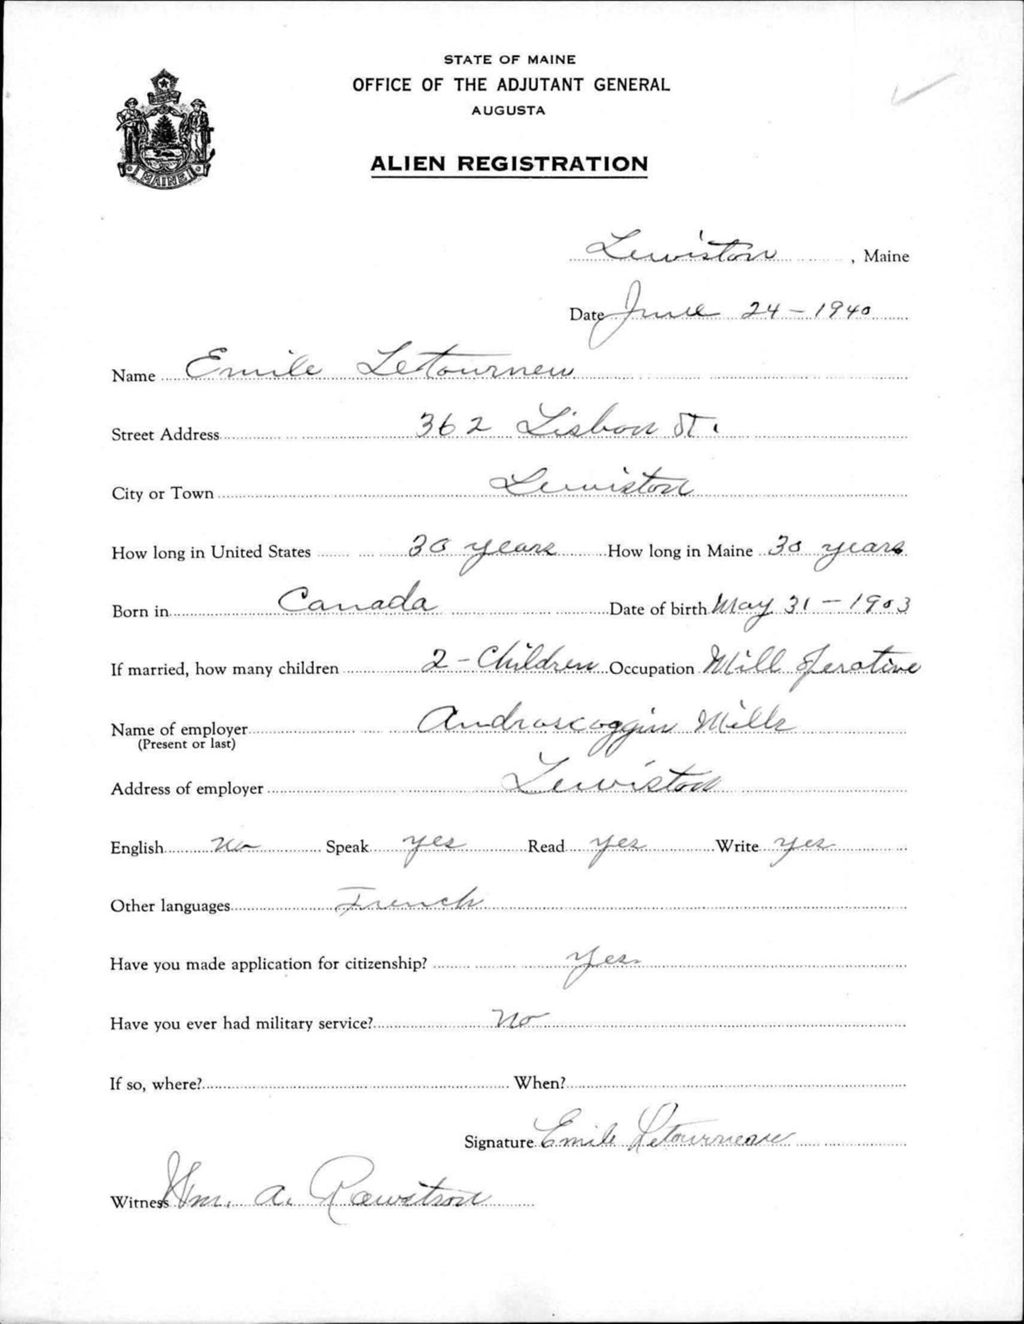 STATE OF MAINE
OFFICE OF THE ADJUTANT GENERAL
AUGUSTA
MAINE
ALIEN REGISTRATION
Lewiston, Maine
Date June 24 - 1940
Name Emile Letourneu
Street Address 362 Lisbon St.
City or Town Lewiston
How long in United States 30 years How long in Maine 30 years
Born in Canada Date of birth May 31 - 1903
If married, how many children 2 - Children Occupation Mill Operative
Name of employer Androscoggin Mills
(Present or last)
Address of employer Lewiston
English no Speak yes Read yes Write yes
Other languages French
Have you made application for citizenship? Yes
Have you ever had military service? No
If so, where? When?
Signature Emile Letourneau
Witness Wm. A. Rawstron